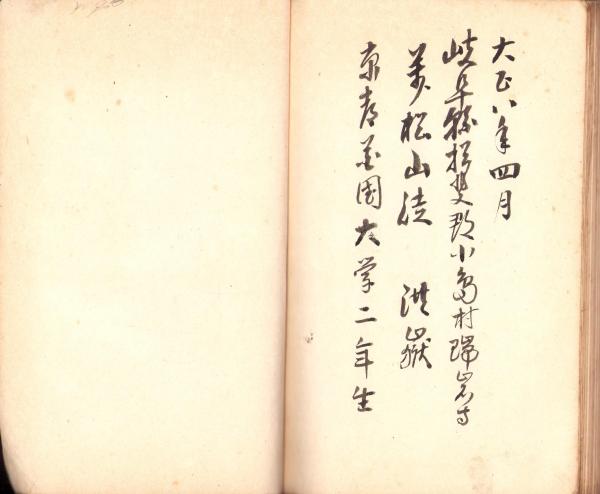 大正八年四月
岐阜縣揖斐郡小島村瑞岩寺
萬松山徒 洪嶽
京都花園大学二年生